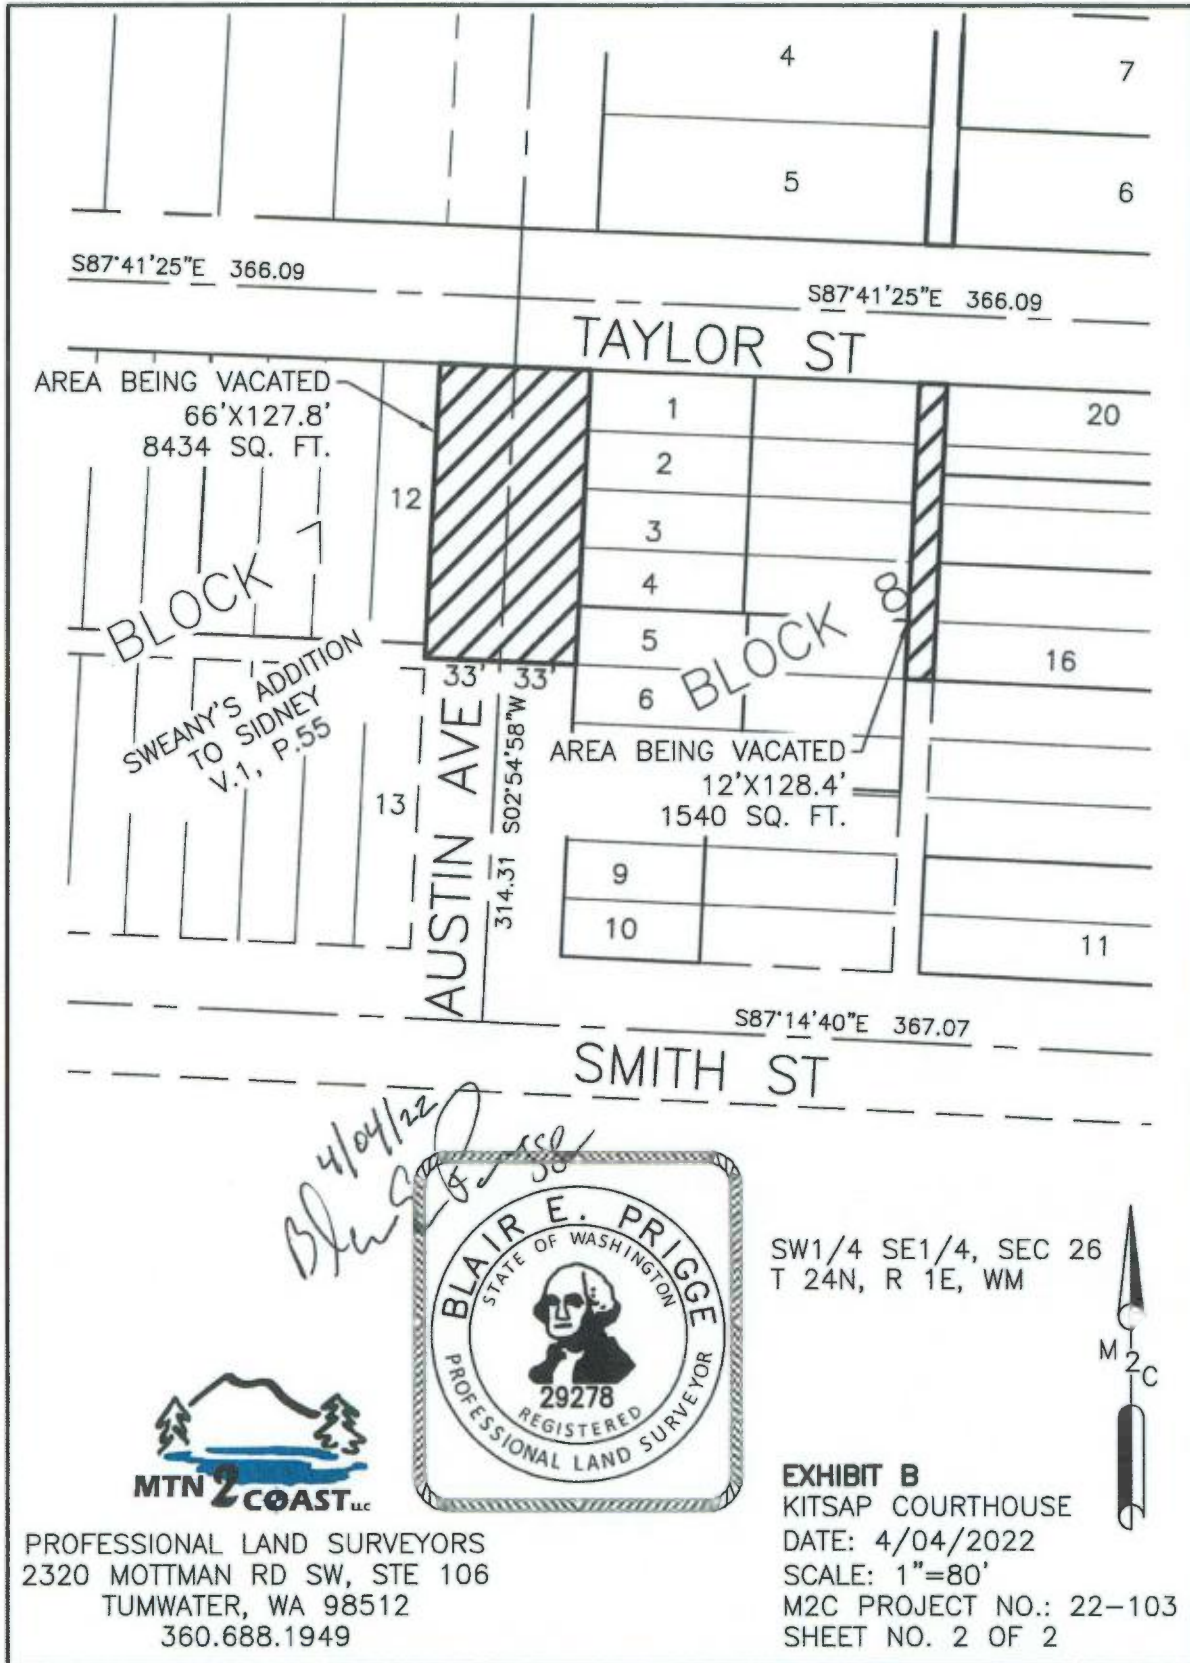 4
7
5
6
S87°41'25"E 366.09
S87°41'25"E 366.09
TAYLOR ST
AREA BEING VACATED
66'X127.8'
8434 SQ. FT.
1
20
2
12
3
4
BLOCK 7
BLOCK 8
5
16
33' 33'
6
SWEANY'S ADDITION
TO SIDNEY
V.1, P.55
AREA BEING VACATED
12'X128.4'
1540 SQ. FT.
13
AUSTIN AVE
314.31 S02°54'58"W
9
10
11
S87°14'40"E 367.07
SMITH ST
4/04/22
BLAIR E. PRIGGE
STATE OF WASHINGTON
29278
REGISTERED
PROFESSIONAL LAND SURVEYOR
SW1/4 SE1/4, SEC 26
T 24N, R 1E, WM
M2C
MTN 2 COAST LLC
PROFESSIONAL LAND SURVEYORS
2320 MOTTMAN RD SW, STE 106
TUMWATER, WA 98512
360.688.1949
EXHIBIT B
KITSAP COURTHOUSE
DATE: 4/04/2022
SCALE: 1"=80'
M2C PROJECT NO.: 22-103
SHEET NO. 2 OF 2